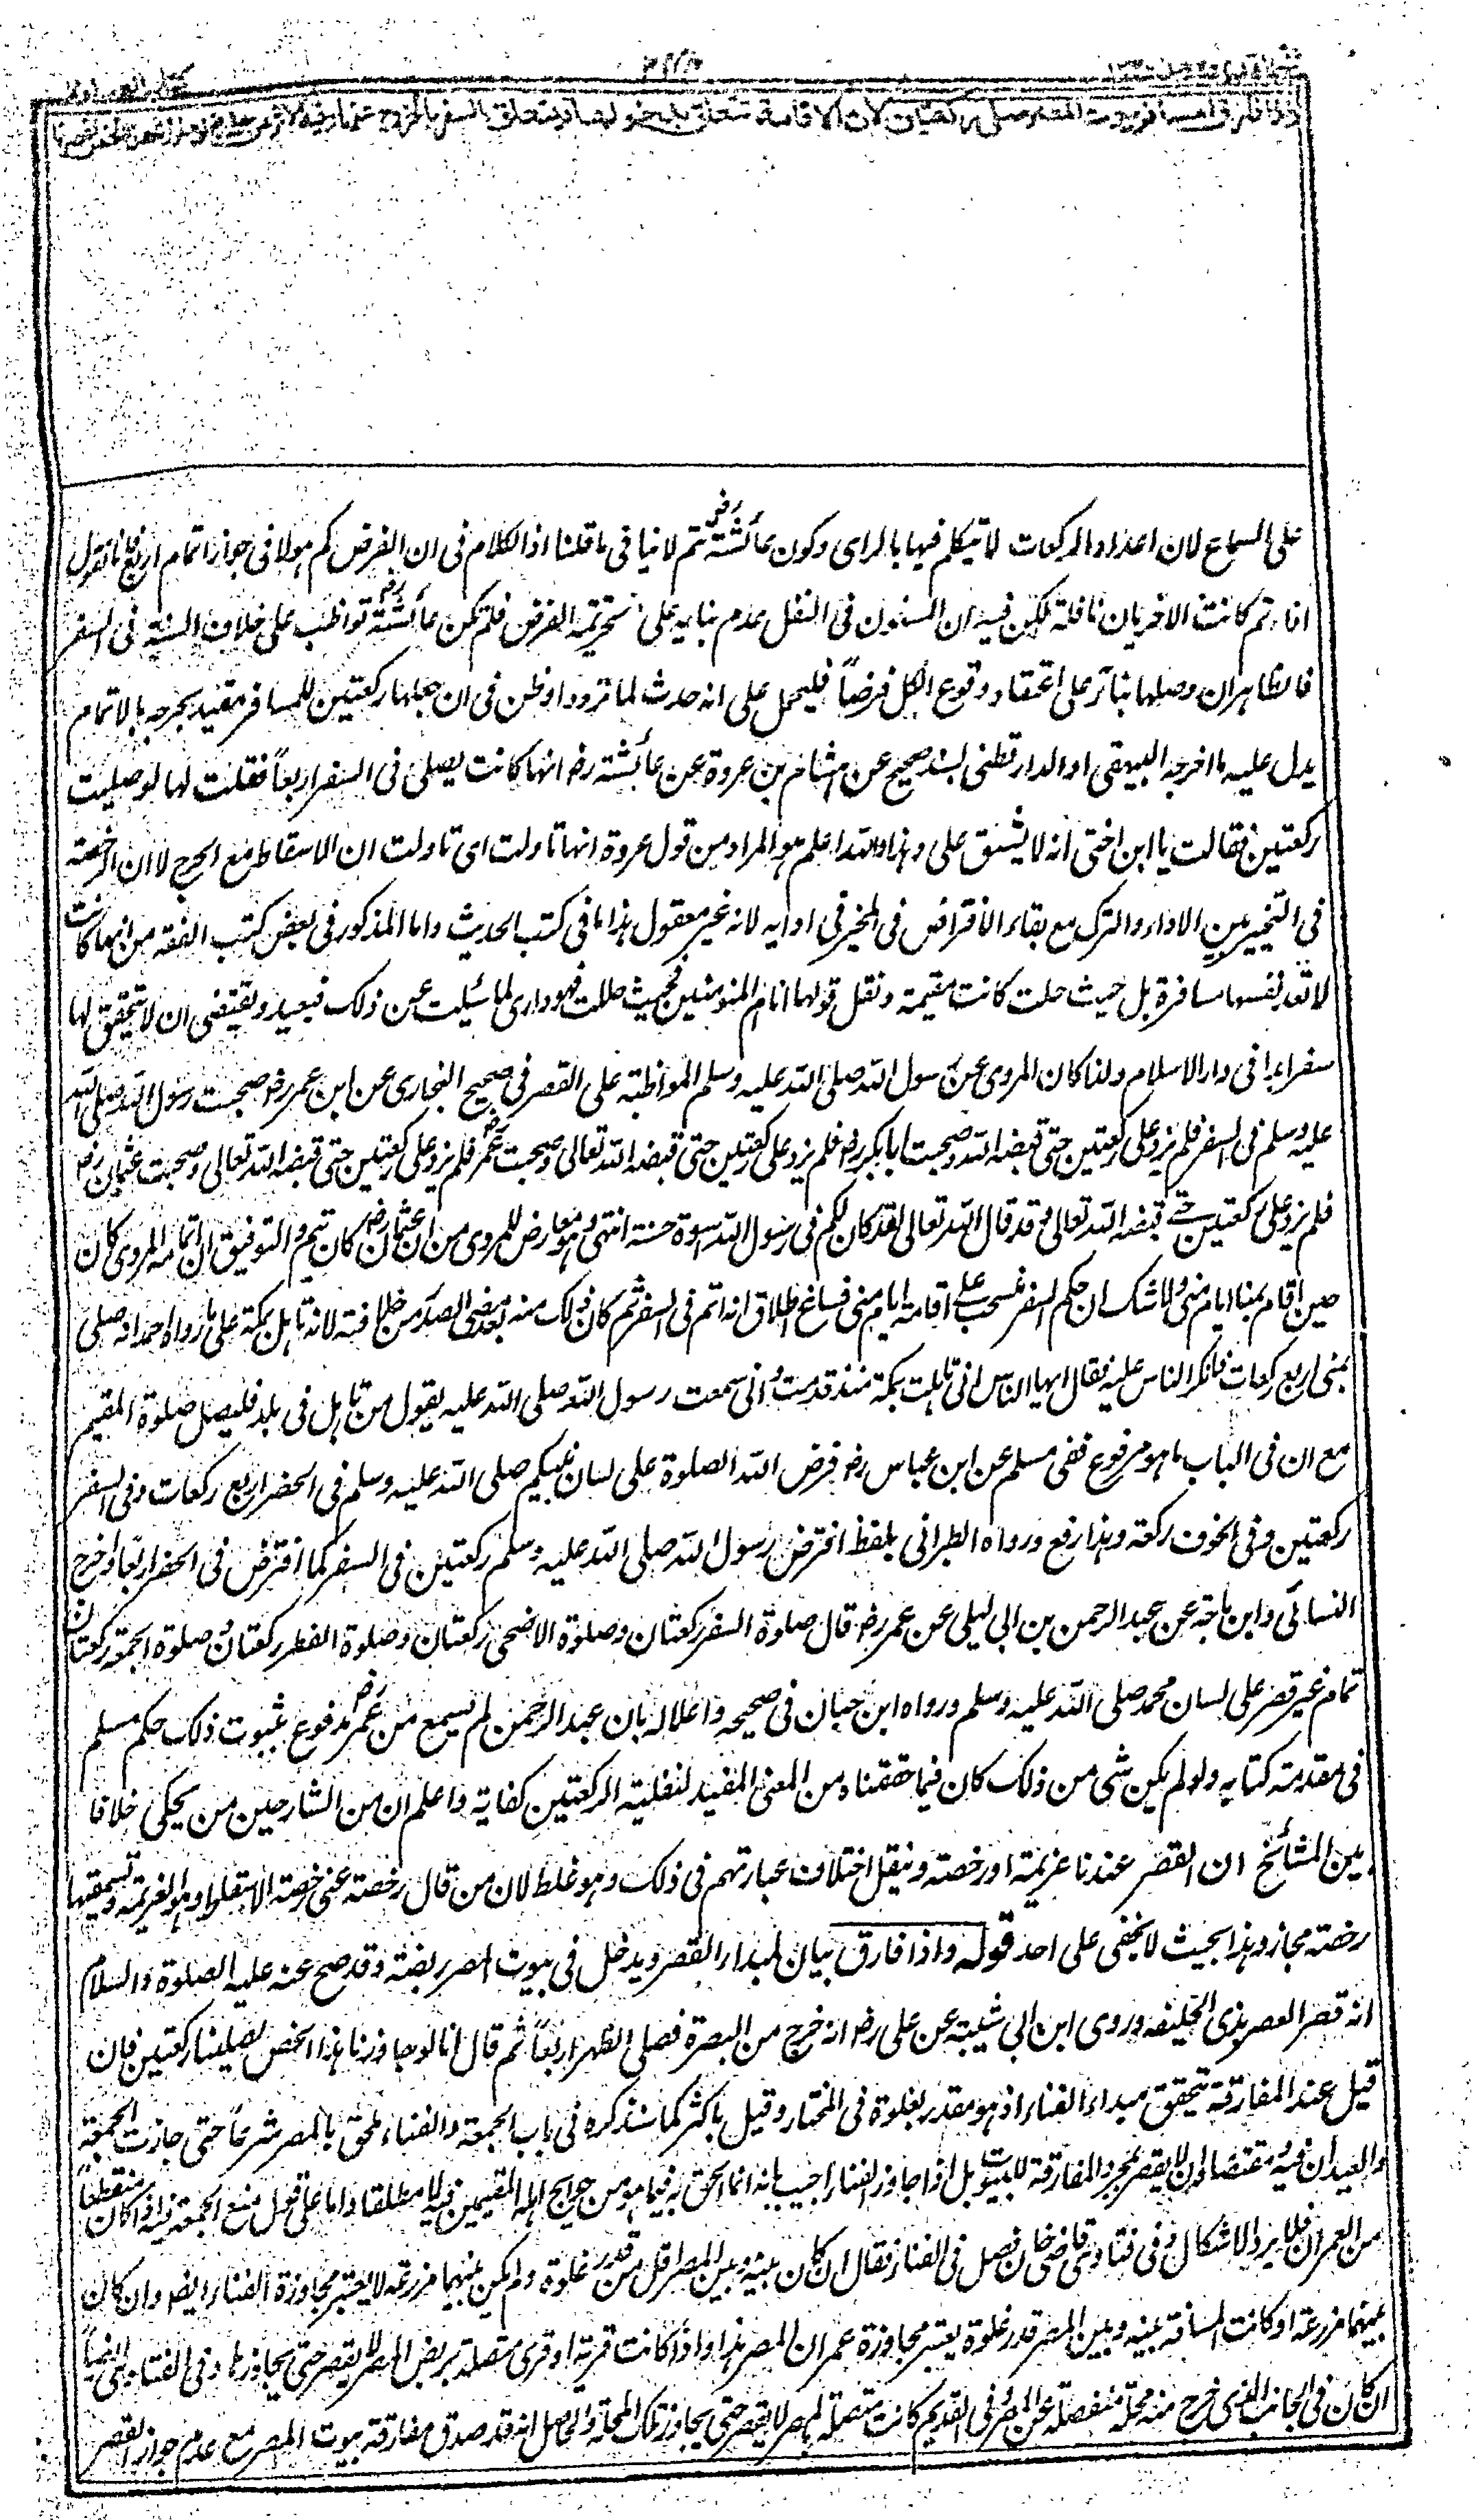 واذا فارق المسافر بيوت المصر صلى ركعتين لان الاقامة تتعلق بدخولها فيتعلق السفر بالخروج عنها وفيه الاثر عن علي رضي لو جاوزنا هذا الخص لقصرنا
على السماع لان اعداد الركعات لا يتكلم فيها بالراى وكون عائشة رض تتم لا ينافى ما قلنا اذ الكلام فى ان الفرض كم هو لا فى جواز اتمام اربع فانا نقول
اذا اتم كانت الاخريان نافلة لكن فيه ان المسنون فى النفل عدم بنايه على تحريمة الفرض فلم تكن عائشة رض تواظب على خلاف السنة فى السفر
فالظاهر ان وصلها بناءً على اعتقاد وقوع الكل فرضاً فليحمل على انه حدث لها تردد او ظن فى ان جعلها ركعتين للمسافر مقيد بحرجه بالاتمام
يدل عليه ما اخرجه البيهقى او الدارقطنى بسند صحيح عن هشام بن عروة عن عائشة رض انها كانت يصلى فى السفر اربعاً فقلت لها لو صليت
ركعتين فقالت يا ابن اختى انه لا يشق على وهذا والله اعلم هو المراد من قول عروة انها تاولت اى تاولت ان الاسقاط مع الحرج لا ان الرخصة
فى التخيير بين الاداء والترك مع بقاء الافتراض فى المخير فى ادايه لانه غير معقول هذا ما فى كتب الحديث واما المذكور فى بعض كتب الفقه من انها كانت
لا تعد نفسها مسافرة بل حيث حلت كانت مقيمة ونقل قولها انا ام المومنين فحيث حللت فهو دارى لما سئلت عن ذلك فبعيد ويقتضى ان لا يتحقق لها
سفر ابدا فى دار الاسلام ولذا كان المروى عن رسول الله صلى الله عليه وسلم المواظبة على القصر فى صحيح البخارى عن ابن عمر رض صحبت رسول الله صلى الله
عليه وسلم فى السفر فلم يزد على ركعتين حتى قبضه الله وصحبت ابا بكر رض فلم يزد على ركعتين حتى قبضه الله تعالى وصحبت عمر رض فلم يزد على ركعتين حتى قبضه الله تعالى وصحبت عثمان رض
فلم يزد على ركعتين حتى قبضه الله تعالى وقد قال الله تعالى لقد كان لكم فى رسول الله اسوة حسنة انتهى وهو معارض للمروى من ان عثمان رض كان يتم والتوفيق ان اتمامه المروى كان
حين اقام بمنا ايام منى ولا شك ان حكم السفر منسحب على اقامة ايام منى فساغ اطلاق انه اتم فى السفر ثم كان ذلك منه بعد مضى الصدر من خلافته لانه تاهل بمكة على ما رواه احمد انه صلى
بمنى اربع ركعات فانكر الناس عليه فقال ايها الناس انى تاهلت بمكة منذ قدمت وانى سمعت رسول الله صلى الله عليه يقول من تاهل فى بلد فليصل صلوة المقيم
مع ان فى الباب ما هو مرفوع ففى مسلم عن ابن عباس رض فرض الله الصلوة على لسان نبيكم صلى الله عليه وسلم فى الحضر اربع ركعات وفى السفر
ركعتين وفى الخوف ركعة وهذا رفع ورواه الطبرانى بلفظ افترض رسول الله صلى الله عليه وسلم ركعتين فى السفر كما افترض فى الحضر اربعا واخرج
النسائى وابن ماجة عن عبد الرحمن بن ابى ليلى عن عمر رض قال صلوة السفر ركعتان وصلوة الاضحى ركعتان وصلوة الفطر ركعتان وصلوة الجمعة ركعتان
تمام غير قصر على لسان محمد صلى الله عليه وسلم ورواه ابن حبان فى صحيحه واعلاله بان عبد الرحمن لم يسمع من عمر رض مدفوع بثبوت ذلك حكم مسلم
فى مقدمة كتابه ولو لم يكن شى من ذلك كان فيما حققناه من المعنى المفيد لنفلية الركعتين كفاية واعلم ان من الشارحين من يحكى خلافا
بين المشائخ ان القصر عندنا عزيمة او رخصة وينقل اختلاف عبارتهم فى ذلك وهو غلط لان من قال رخصة عنى رخصة الاسقاط وهو العزيمة وتسميتها
رخصة مجاز وهذا بحيث لا يخفى على احد قوله واذا فارق بيان لمبداء القصر ويدخل فى بيوت المصر ربضه وقد صح عنه عليه الصلوة والسلام
انه قصر العصر بذى الحليفه وروى ابن ابى شيبة عن على رض انه خرج من البصرة فصلى الظهر اربعاً ثم قال انا لو جاوزنا هذا الخص لصلينا ركعتين فان
قيل عند المفارقة يتحقق مبداء الفناء اذ هو مقدر بغلوة فى المختار وقيل باكثر كما سنذكره فى باب الجمعة والفناء ملحق بالمصر شرعاً حتى جازت الجمعة
والعيدان فيه ومقتضاه ان لا يقصر بمجرد المفارقة للبيوت بل اذا جاوز الفناء اجيب بانه انما الحق به فيما هو من حوايج اهله المقيمين فيه لا مطلقا واما على قول منع الجمعة فيه اذا كان منقطعاً
من العمران فلا يرد الاشكال وفى فتاوى قاضى خان فصل فى الفناء فقال ان كان بينه وبين المصر اقل من قدر غلوة ولم يكن بينهما مزرعة لا يعتبر مجاوزة الفناء ايضا وان كان
بينهما مزرعة او كانت المسافة بينه وبين المصر قدر غلوة يعتبر مجاوزة عمران المصر هذا واذا كانت قرية او قرى متصلة بربض المصر لا يقصر حتى يجاوزها وفى الفتاوى ايضاً
ان كان فى الجانب الذى خرج منه محلة منفصلة عن المصر وفى القديم كانت متصلة بالمصر لا يقصر حتى يجاوز تلك المحلة والحاصل انه قد صدق مفارقة بيوت المصر مع عدم جواز القصر